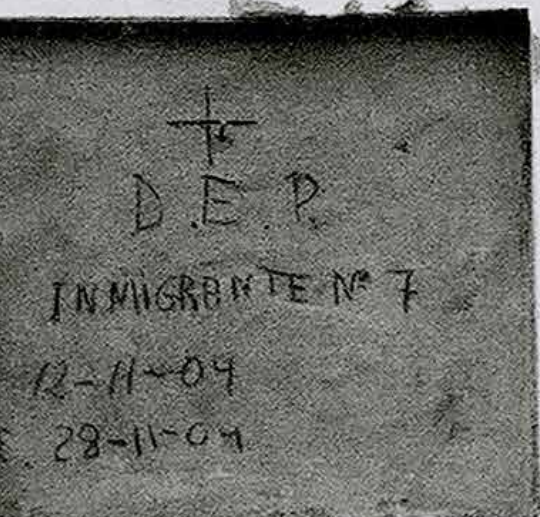 D.E.P.
INMIGRANTE Nº 7
12-11-04
28-11-04